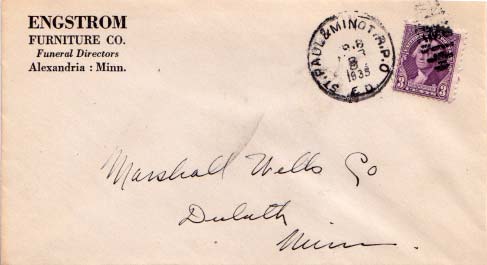 ENGSTROM
FURNITURE CO.
Funeral Directors
Alexandria : Minn.
ST. PAUL & MINOT. R.P.O.
1935
E.D.
3 3
Marshall Wells Co
Duluth
Minn.